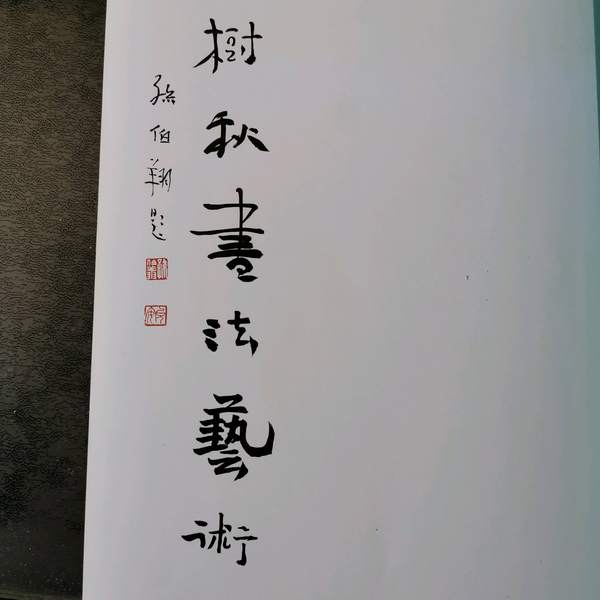 樹秋書法藝術
孫伯翔題